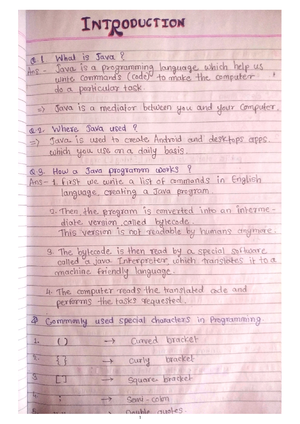 INTRODUCTION
Q.1. What is Java ?
Ans- Java is a programming language which help us
write Commands (code) to make the computer
do a particular task.
=> Java is a mediator between you and your Computer.
Q.2. Where Java used ?
=> Java is used to create Android and desktops apps
which you use on a daily basis.
Q.3. How a Java programm works ?
Ans- 1. First we write a list of commands in English
language, creating a Java program.
2. Then the program is converted into an Interme-
diate version called bytecode.
This version is not readable by humans anymore.
3. The bytecode is then read by a special software
called a Java Interpreter which translates it to a
machine friendly language.
4. The computer reads the translated code and
performs the tasks requested.
Commonly used special characters in Programming.
1. ( ) → Curved bracket
2. { } → Curly bracket
3. [ ] → Square bracket
4. ; → Semi-colon
→ Double quotes